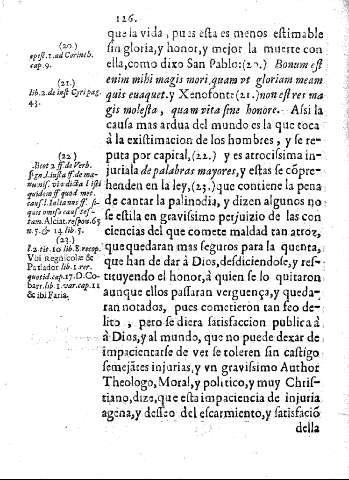 126.
que la vida, pues esta es menos estimable
sin gloria, y honor, y mejor la muerte con
ella, como dixo San Pablo:(20.) Bonum est
enim mihi magis mori, quam vt gloriam meam
quis euaquet. y Xenofonte(21.) non est res ma
gis molesta, quam vita sine honore. Assi la
causa mas ardua del mundo es la que toca
à la existimacion de los hombres, y se re-
puta por capital,(22.) y es atrocissima in-
juria la de palabras mayores, y estas se cōpre-
henden en la ley,(23.) que contiene la pena
de cantar la palinodia, y dizen algunos no
se estila en gravissimo perjuizio de las con
ciencias del que comete maldad tan atroz,
que quedaran mas seguros para la quenta,
que han de dar à Dios, desdiciendose, y res-
tituyendo el honor, à quien se lo quitaron
aunque ellos passaran verguença, y queda-
ran notados, pues cometieron tan feo de-
lito, pero se diera satisfaccion publica à
à Dios, y al mundo, que no puede dexar de
impacientarse de ver se toleren sin castigo
semejātes injurias, y vn gravissimo Author
Theologo, Moral, y politico, y muy Chris-
tiano, dize, que esta impaciencia de injuria
agena, y desseo del escarmiento, y satisfació
della
(20.)
epist. 1. ad Corinth.
cap. 9.
(21.)
lib. 2. de inst Cyri pag.
43.
(22.)
.l. tot 2 ff de Verb.
sign l. iusta ff. de ma-
numiss. vi dicta l isti
quidem ff quod met.
caus. l. Iulianus ff. si
quis omiss caus tes-
tam. Alciat. respon. 65
n. 5. & 14 lib. 5.
(23.)
l. 2 tit. 10 lib. 8. recop.
Vbi Regnicolæ &
Parlador lib. 1. rer.
quotid. cap. 17. D. Co-
barr. lib 1. var. cap. 11
& ibi Faria.